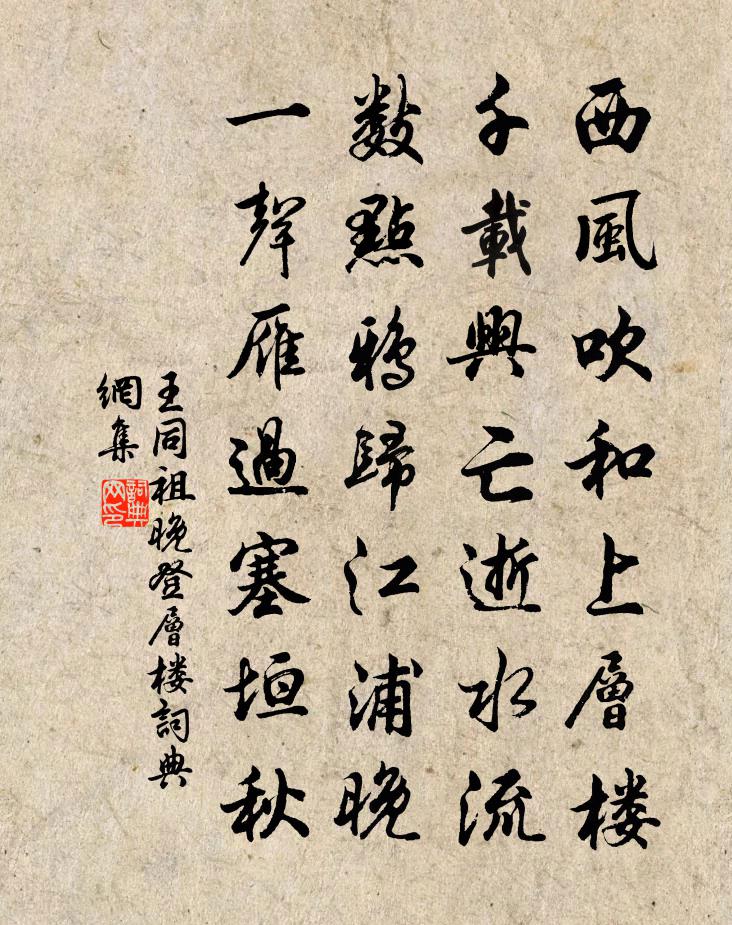 西風吹和上層楼
千載興亡逝水流
數點鴉歸江浦晚
一聲雁過塞垣秋
王同祖晚登層楼詞典
網集
詞典
网印